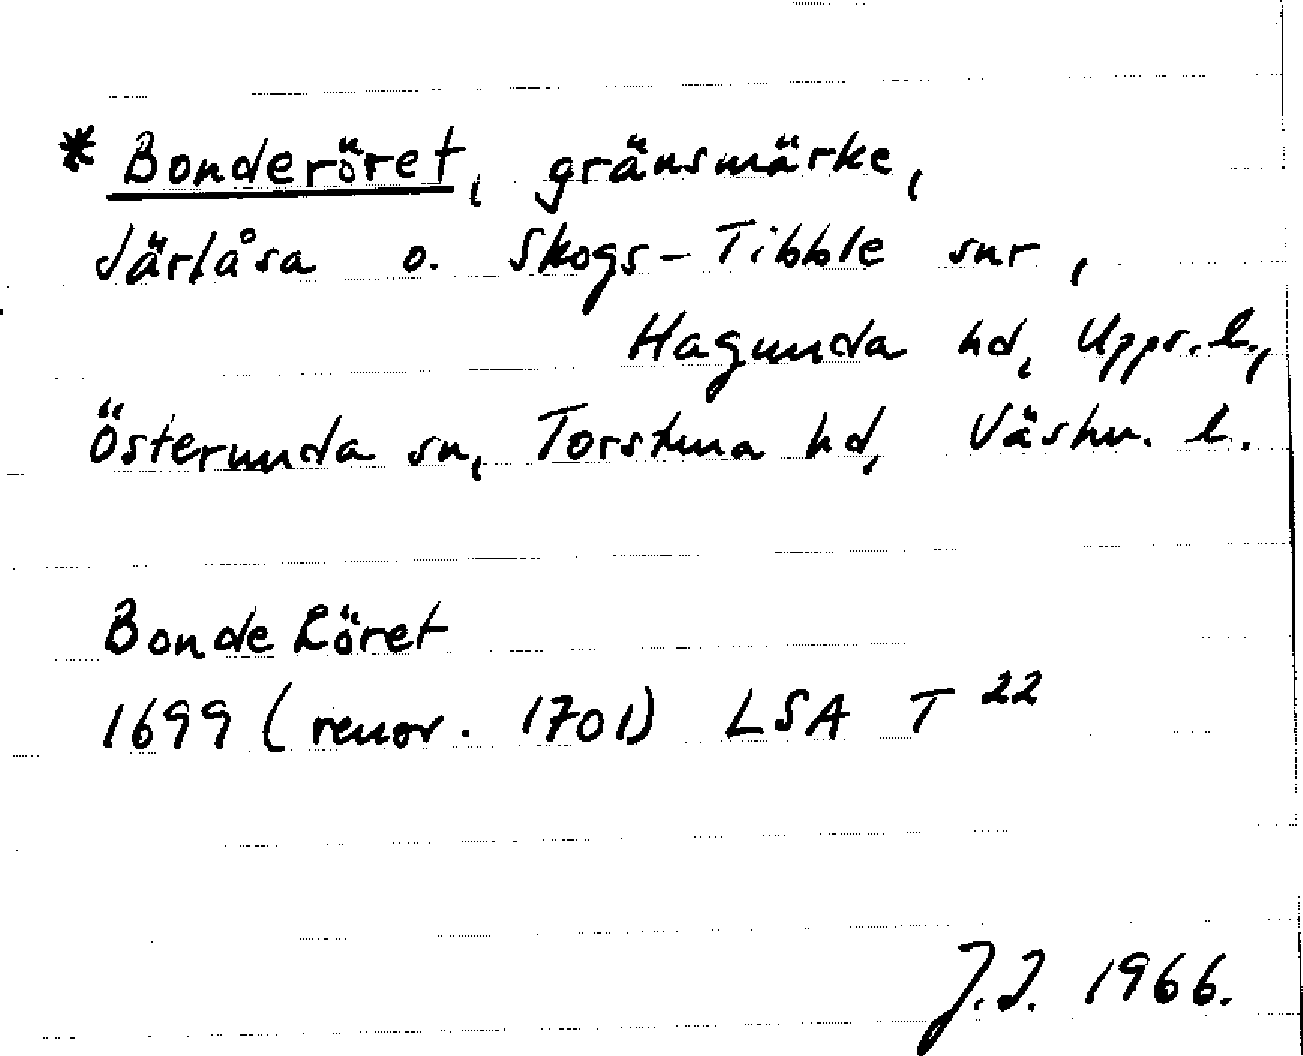 * Bonderöret, gränsmärke,
Järlåsa o. Skogs-Tibble snr,
Hagunda hd, Upps. l.,
Österunda sn, Torstuna hd, Västm. l.
Bonde Röret
1699 (renov. 1701) LSA T 22
J.I. 1966.